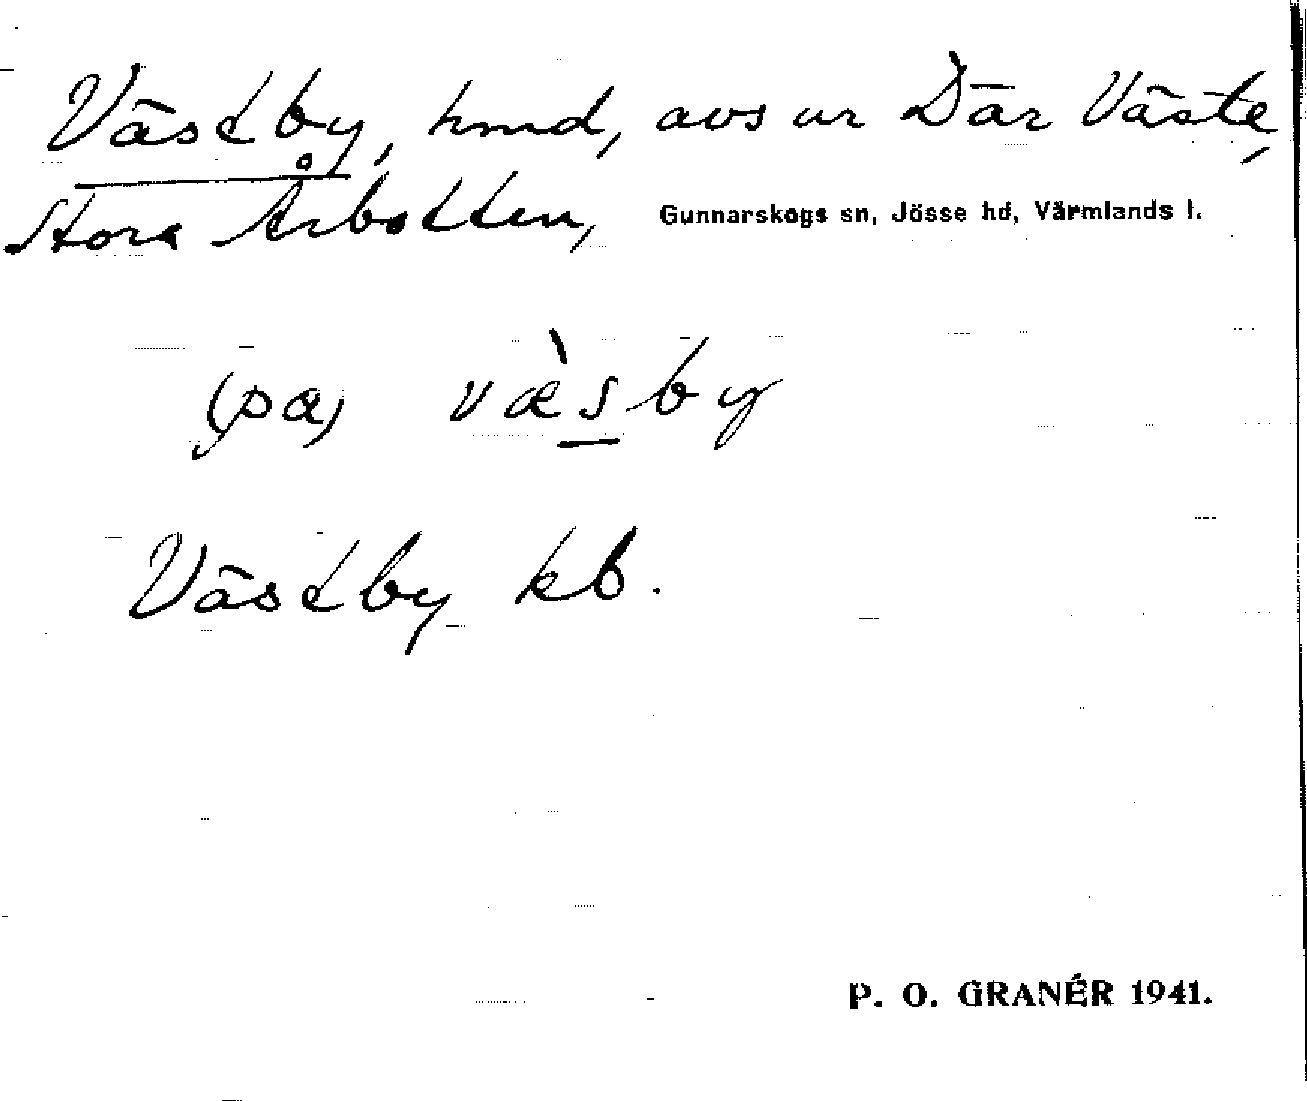 Västby, hmd, avs ur Där Väste,
Stora Årbotten, Gunnarskogs sn, Jösse hd, Värmlands l.
(pa) væ̀sby
Västby kb.
P. O. GRANÉR 1941.